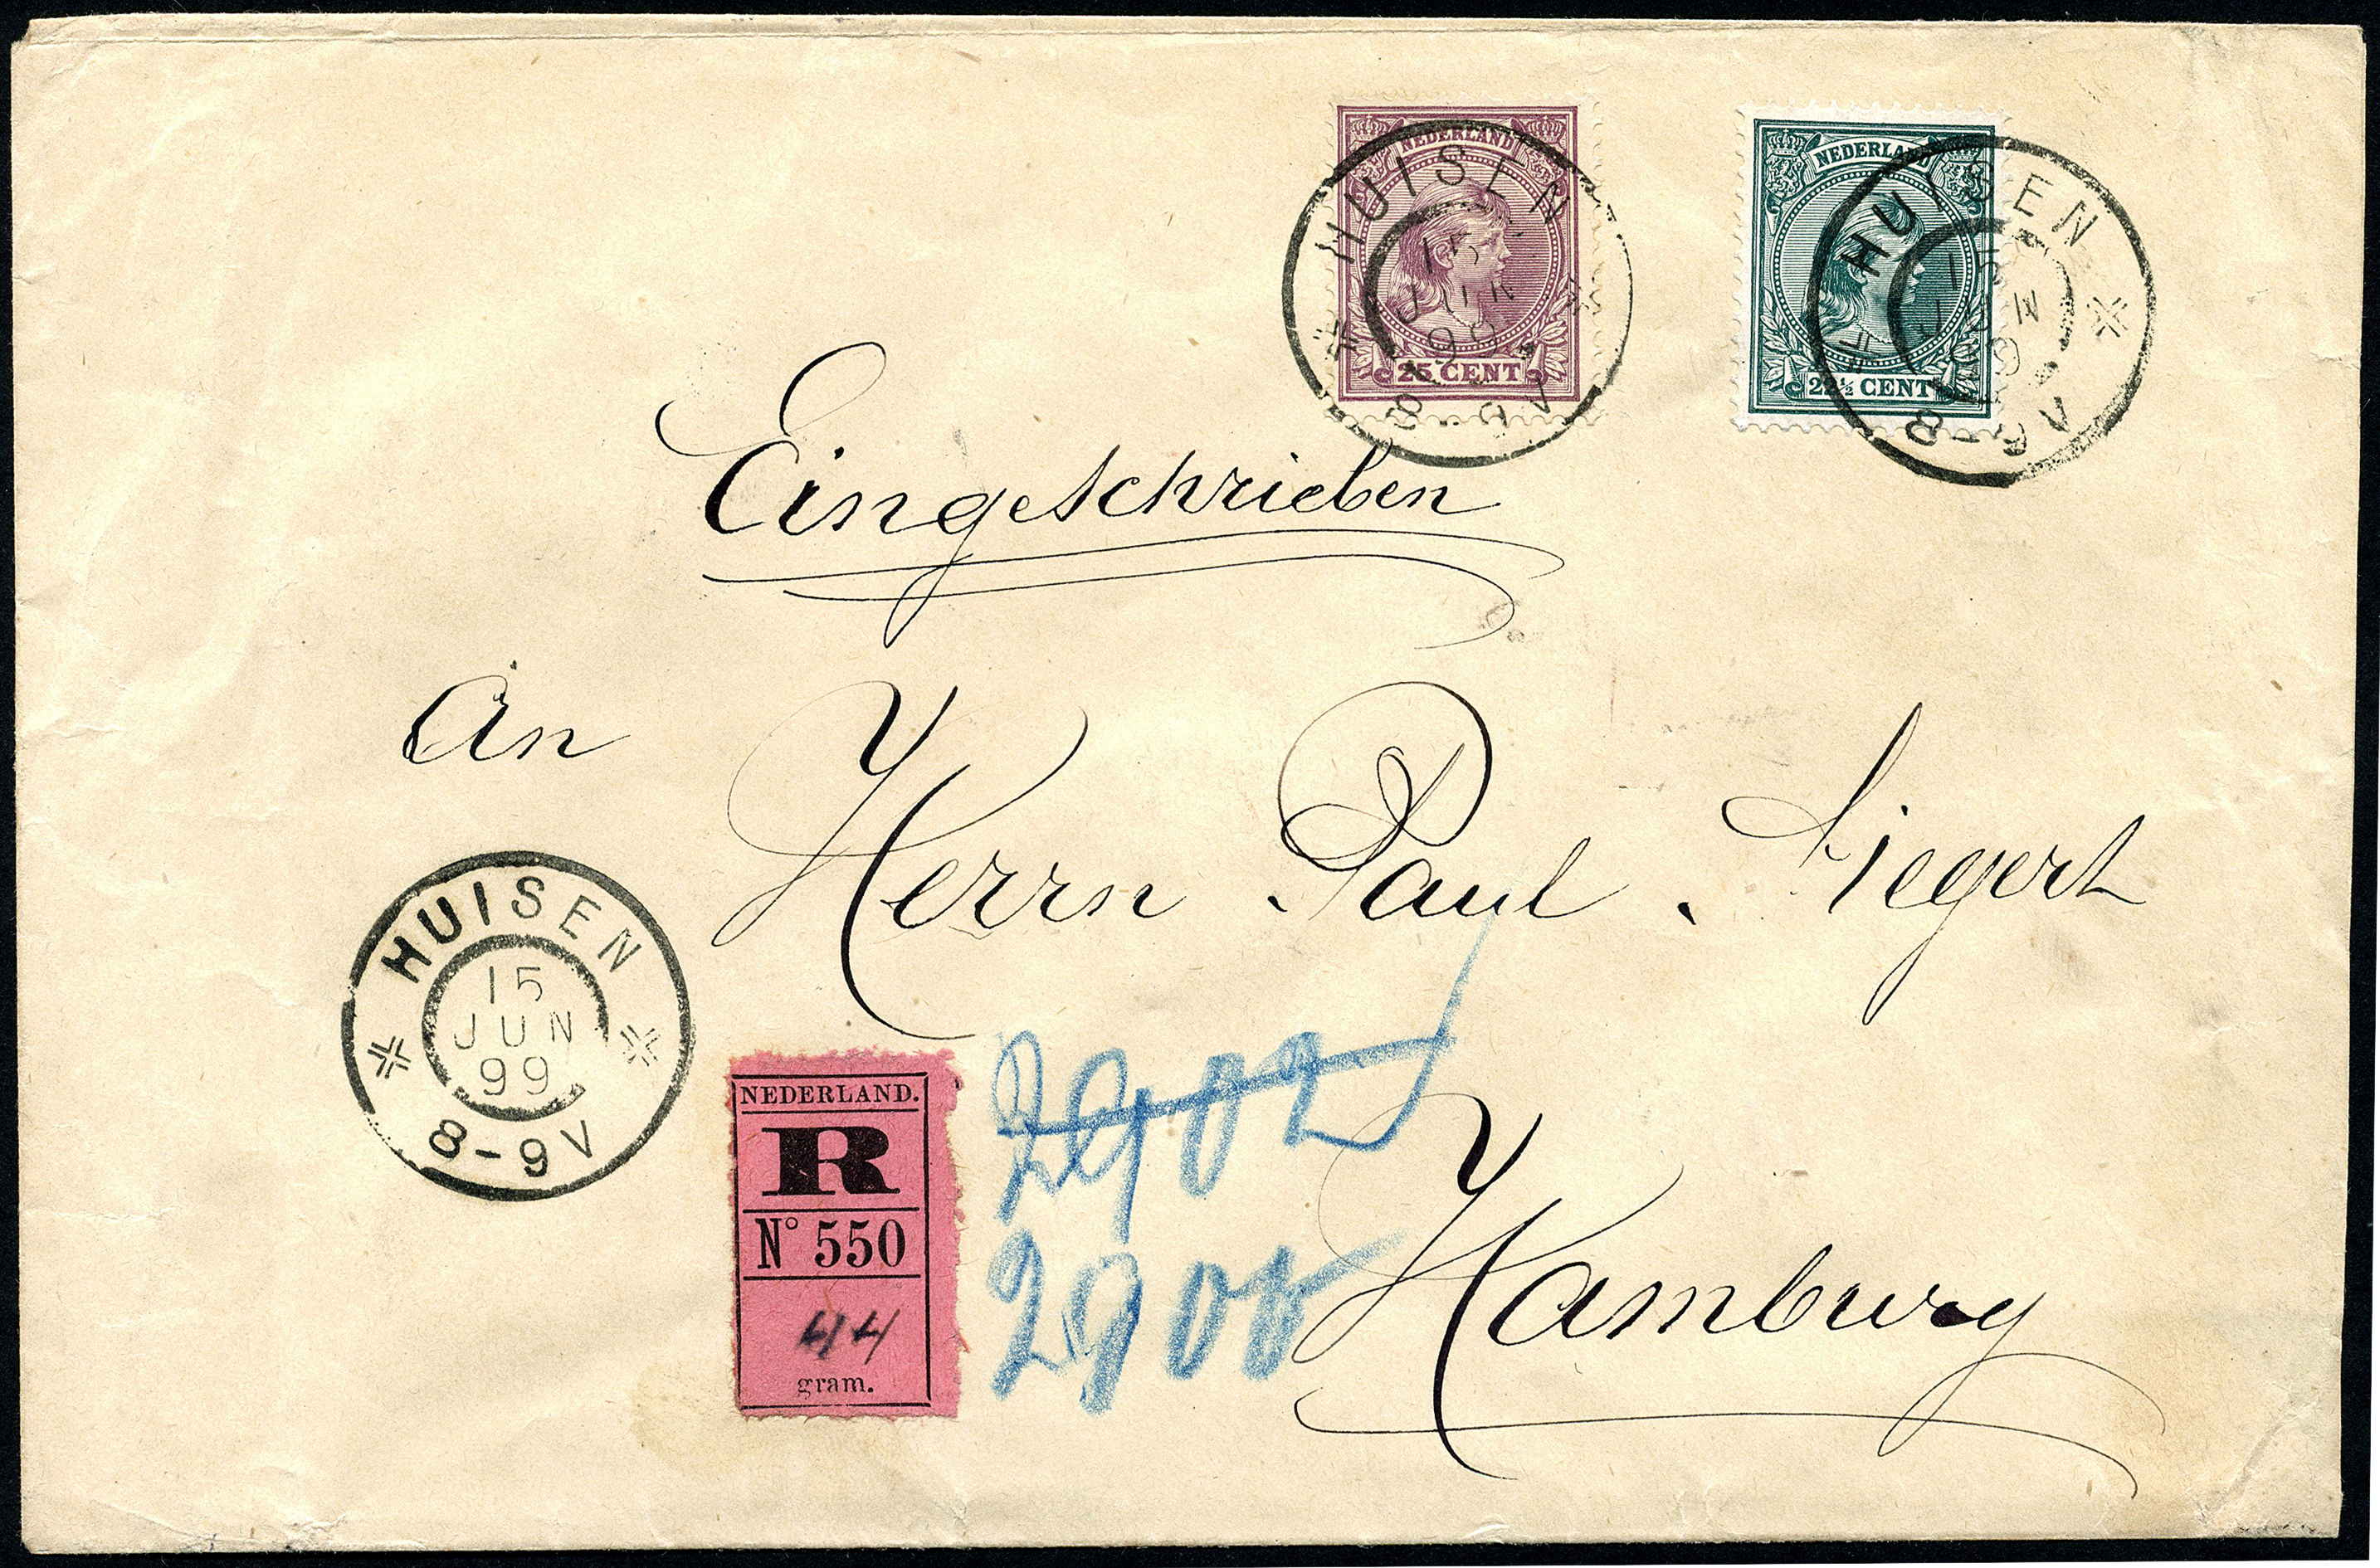 NEDERLAND
25 CENT
HUISEN
15
JUN
99
8-9V
NEDERLAND
22½ CENT
HUISEN
15
JUN
99
8-9V
Eingeschrieben
An Herrn Paul Siegert
HUISEN
15
JUN
99
8-9V
NEDERLAND.
R
N° 550
44
gram.
2902
2900
Hamburg